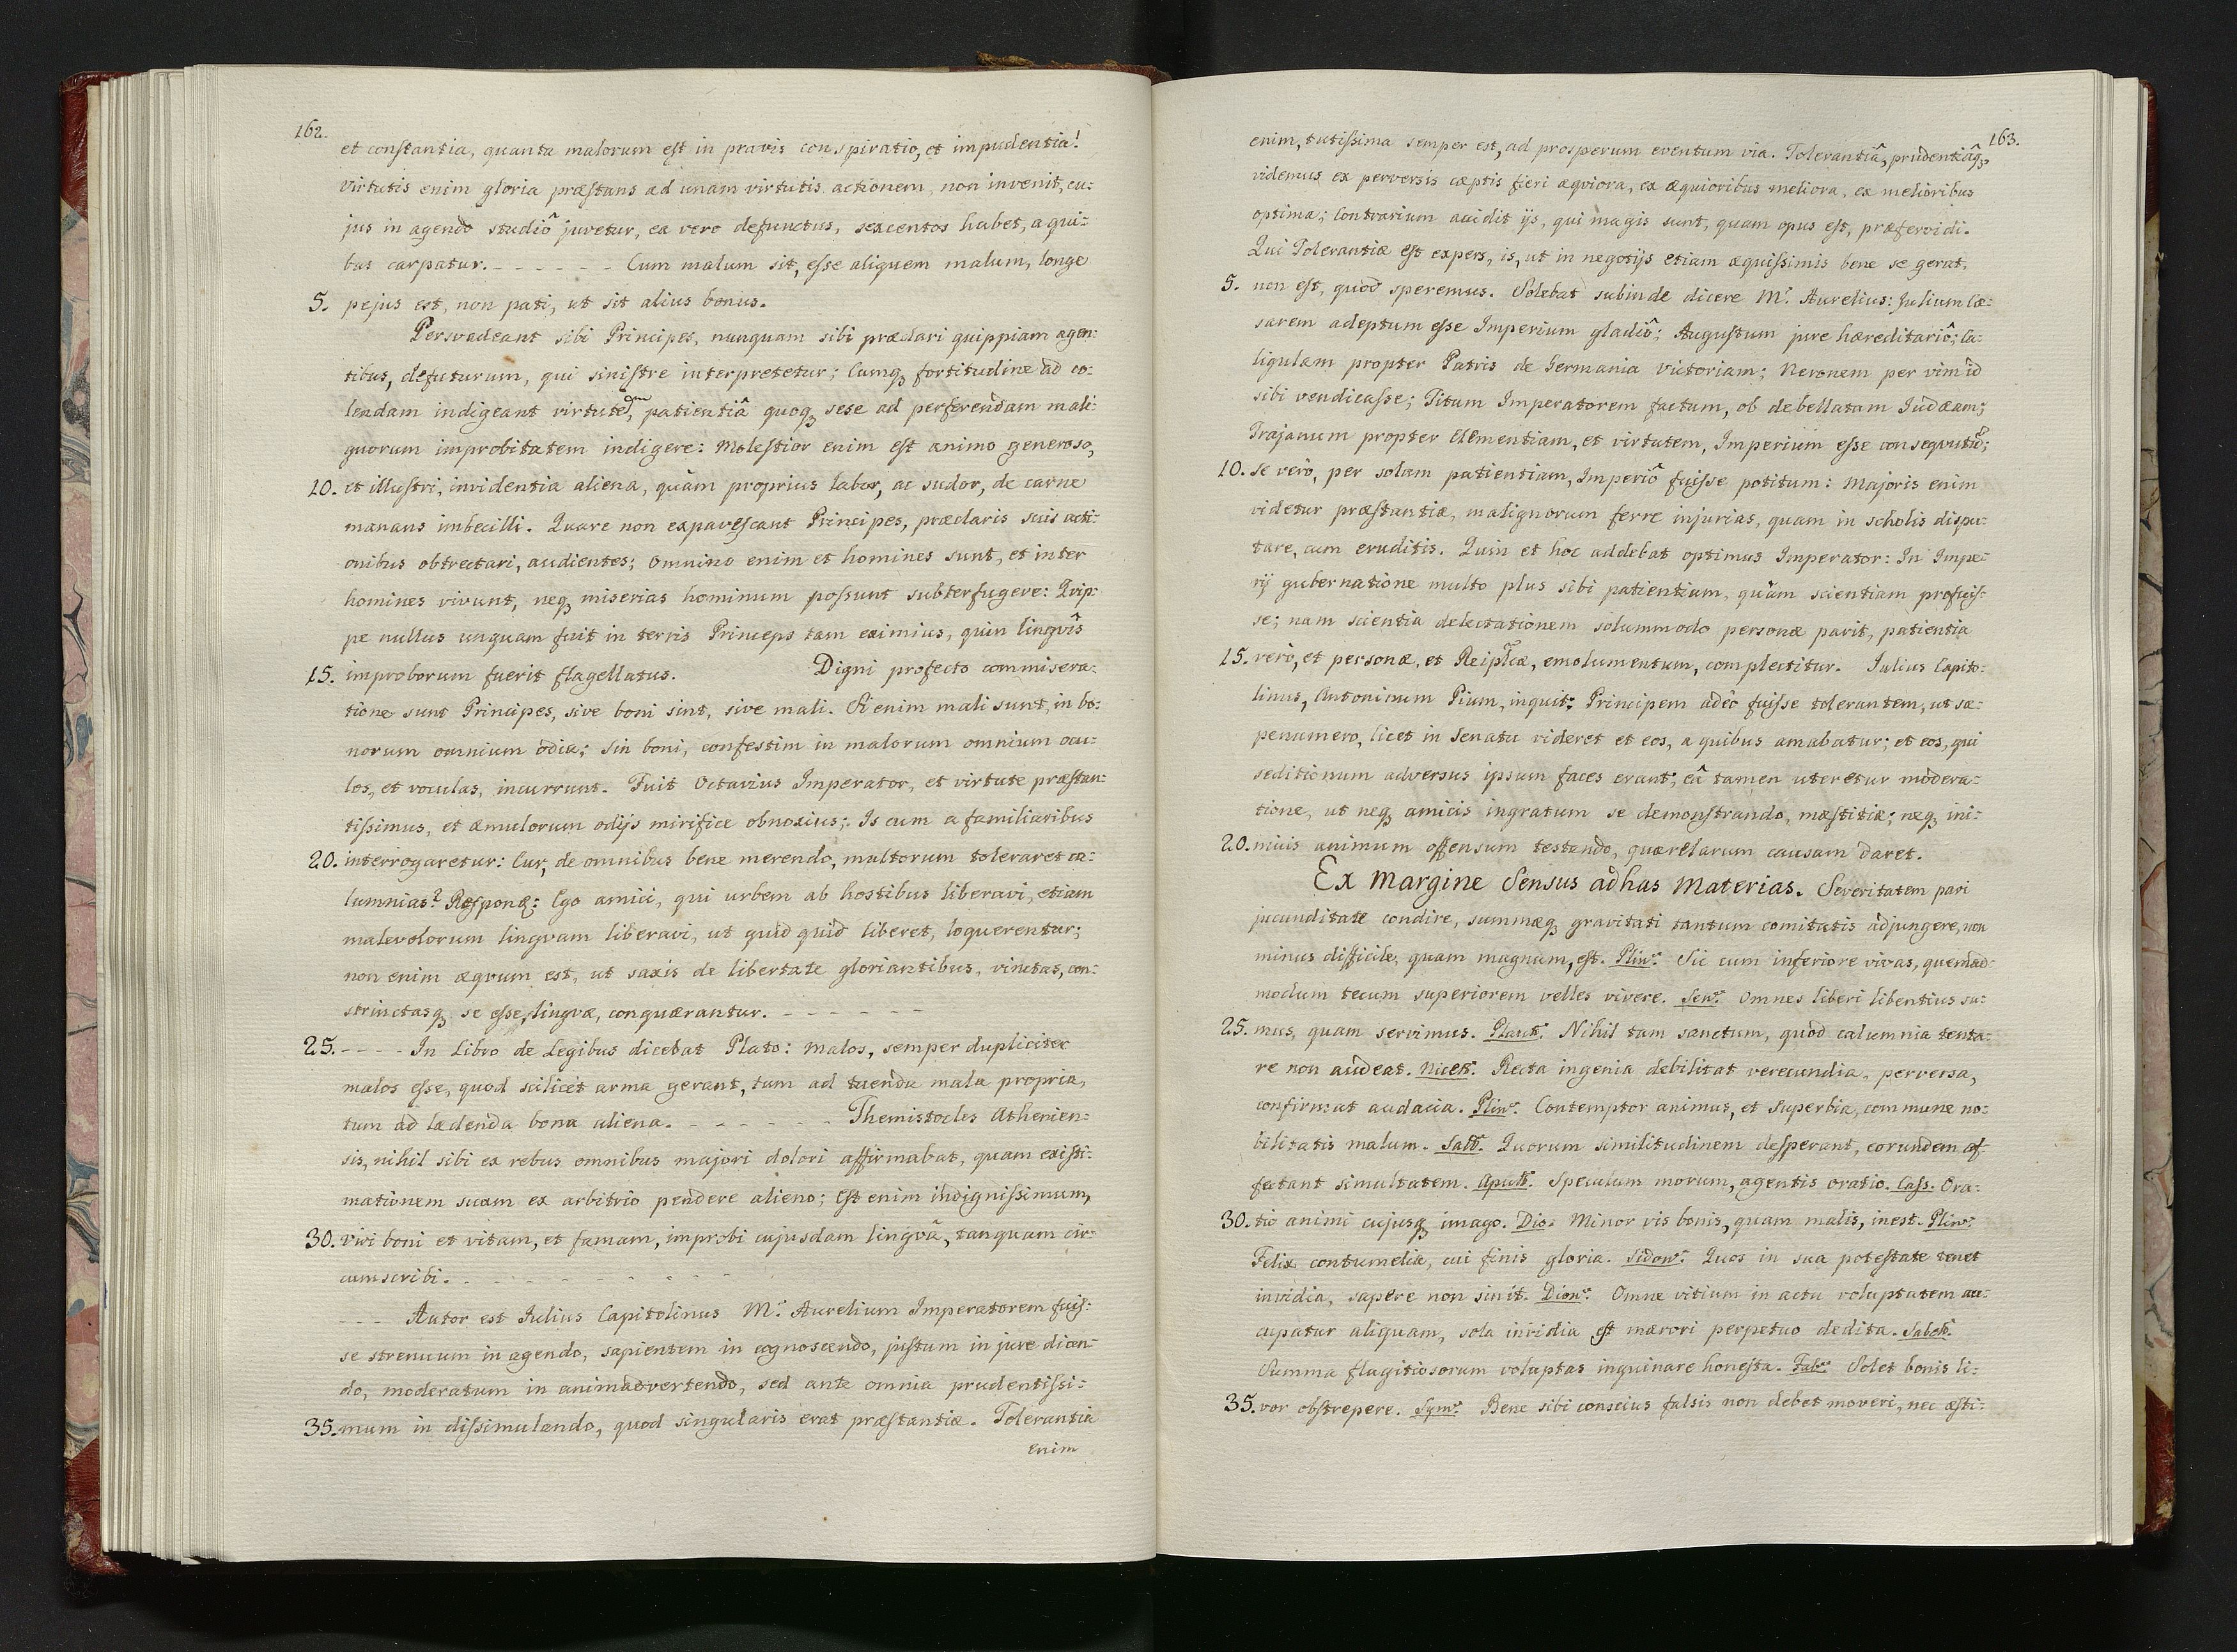 162.
et constantia, quanta malorum est in pravis conspiratio, et impudentia!
virtutis enim gloria præstans ad unam virtutis actionem, non invenit, cu:
jus in agendo studiô juvetur, ea vero defunctus, sexcentos habet, a qui:
bus carpatur. - - - - - - Cum malum sit, esse aliquem malum, longe
5. pejus est, non pati, ut sit alius bonus.
Persvadeant sibi Principes, nunquam sibi præclari quippiam agen:
tibus, defuturum, qui sinistre interpretetur; Cumq3 fortitudine ad co:
lendam indigeant virtutem, patientiâ quoq3 sese ad perferendam mali:
gnorum improbitatem indigere: Molestior enim est animo generoso,
10. et illustri, invidentia aliena, quàm proprius labor, ac sudor, de carne
manans imbecilli. Quare non expavescant Principes, præclaris suis acti:
onibus obtrectari, audientes; omnino enim et homines sunt, et inter
homines vivunt, neq3 miserias hominum possunt subterfugere: Qvip:
pe nullus unquam fuit in terris Princeps tam eximius, quin lingvîs
15. improborum fuerit flagellatus. Digni profecto commisera:
tione sunt Principes, sive boni sint, sive mali. Si enim mali sunt, in bo:
norum omnium odia; sin boni, confestim in malorum omnium ocu:
los, et voculas, incurrunt. Fuit Octavius Imperator, et virtute præstan:
tissimus, et æmulorum odijs mirifice obnoxius; Is cum a familiaribus
20. interrogaretur: Cur, de omnibus bene merendo, multorum toleraret ca:
lumnias? Respond: Ego amici, qui urbem ab hostibus liberavi, etiam
malevolorum lingvam liberavi, ut quid quid liberet, loquerentur;
non enim æqvum est, ut saxis de libertate gloriantibus, vinctas, con:
strinctasq3 se esse, lingvæ, conquærantur. - - - - - -
25. - - - - In Libro de Legibus dicebat Plato: Malos, semper dupliciter
malos esse, quod scilicet arma gerant, tum ad tuenda mala propria,
tum ad lædenda bona aliena. - - - - - - Themistocles Athenien:
sis, nihil sibi ex rebus omnibus majori dolori affirmabat, quam existi:
mationem suam ex arbitrio pendere alieno; Est enim indignissimum,
30. viri boni et vitam, et famam, improbi cujusdam lingvâ, tanquam cir:
cumscribi. - - - - - - - -
- - - Autor est Julius Capitolinus M. Aurelium Imperatorem fuis:
se strenuum in agendo, sapientem in cognoscendo, justum in jure dicen:
do, moderatum in animadvertendo, sed ante omnia prudentissi:
35. mum in dissimulando, quod singularis erat præstantiæ. Tolerantia
enim
163.
enim, tutissima semper est, ad prosperum eventum via. Tolerantiâ, prudentiâq3,
videmus ex perversis cæptis fieri æqviora, ex æquioribus meliora, ex melioribus
optima; Contrarium accidit ijs, qui magis sunt, quam opus est, præfervidi.
Qui Tolerantiæ est expers, is, ut in negotijs etiam æquissimis bene se gerat,
5. non est, quod speremus. Solebat subinde dicere M. Aurelius: Julium Cæ:
sarem adeptum esse Imperium gladiô; Augustum jure hæreditariô; Ca:
ligulam propter Patris de Germania victoriam; Neronem per vim id
sibi vendicasse; Titum Imperatorem factum, ob debellatam Judæam;
Trajanum propter Clementiam, et virtutem, Imperium esse consequutū;
10. se verò, per solam patientiam, Imperiô fuisse potitum: Majoris enim
videtur præstantiæ, malignorum ferre injurias, quam in scholis dispu:
tare, cum eruditis. Quin et hoc addebat optimus Imperator: In Impe:
rij gubernatione multo plus sibi patientiam, quàm scientiam profuis:
se; nam scientia delectationem solummodo personæ parit, patientia
15. verò, et personæ, et Reiplcæ, emolumentum, complectitur. Julius Capito:
linus, Antoninum Pium, inquit: Principem adeò fuisse tolerantem, ut sæ:
penumero, licet in Senatu videret et eos, a quibus amabatur; et eos, qui
seditionum adversus ipsum faces erant; eâ tamen uteretur modera:
tione, ut neq3 amicis ingratum se demonstrando, mæstitiæ; neq3 ini:
20. micis animum offensum testando, quærelarum causam daret.
Ex Margine Sensus ad has Materias. Severitatem pari
jucunditate condire, summæq3 gravitati tantum comitatis adjungere, non
minus difficile, quam magnum, est. Plin. Sic cum inferiore vivas, quemad:
modum tecum superiorem velles vivere. Sen. Omnes liberi libentius su:
25. mus, quam servimus. Plaut. Nihil tam sanctum, quod calumnia tenta:
re non audeat. Nicet. Recta ingenia debilitat verecundia, perversa,
confirmat audacia. Plin. Contemptor animus, et superbia, commune no:
bilitatis malum. Sall. Quorum similitudinem desperant, eorundem af:
fectant simultatem. Apul. Speculum morum, agentis oratio. Cass. Ora:
30. tio animi cujusq3 imago. Dio. Minor vis bonis, quam malis, inest. Plin.
Felix contumelia, cui finis gloria. Sidon. Quos in sua potestate tenet
invidia, sapere non sinit. Dion. Omne vitium in actu voluptatem au:
cupatur aliquam, sola invidia est mærori perpetuo dedita. Sabell.
Summa flagitiosorum voluptas inquinare honesta. Fab. Solet bonis li:
35. vor obstrepere. Sym. Bene sibi conscius falsis non debet moveri, nec æsti: